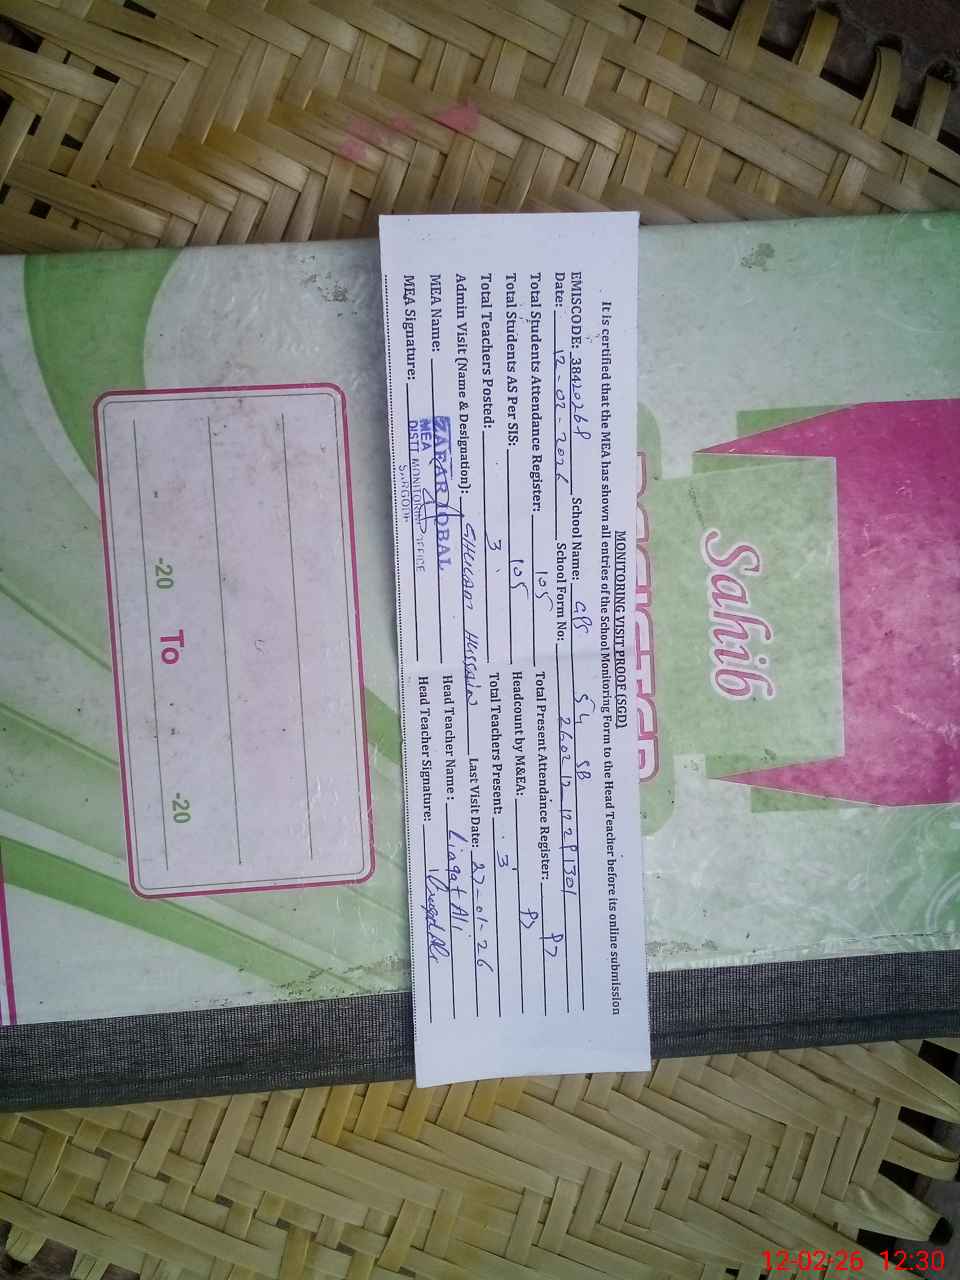 MONITORING VISIT PROOF (SGD)
It is certified that the MEA has shown all entries of the School Monitoring Form to the Head Teacher before its online submission
EMISCODE: 38420268 School Name: GPS 54 SB
Date: 12-02-2026 School Form No:
Total Students Attendance Register: 105 Total Present Attendance Register:
Total Students AS Per SIS: 105 Headcount by M&EA:
Total Teachers Posted: 3 Total Teachers Present: 3
Admin Visit (Name & Designation): Hussain Last Visit Date: 27-01-26
MEA Name: ZAFAR IQBAL Head Teacher Name: Liaqat Ali
MEA
MEA Signature: DISTT MONITORING OFFICE Head Teacher Signature:
SARGODHA
Sahib
-20 To -20
12-02-26 12:30